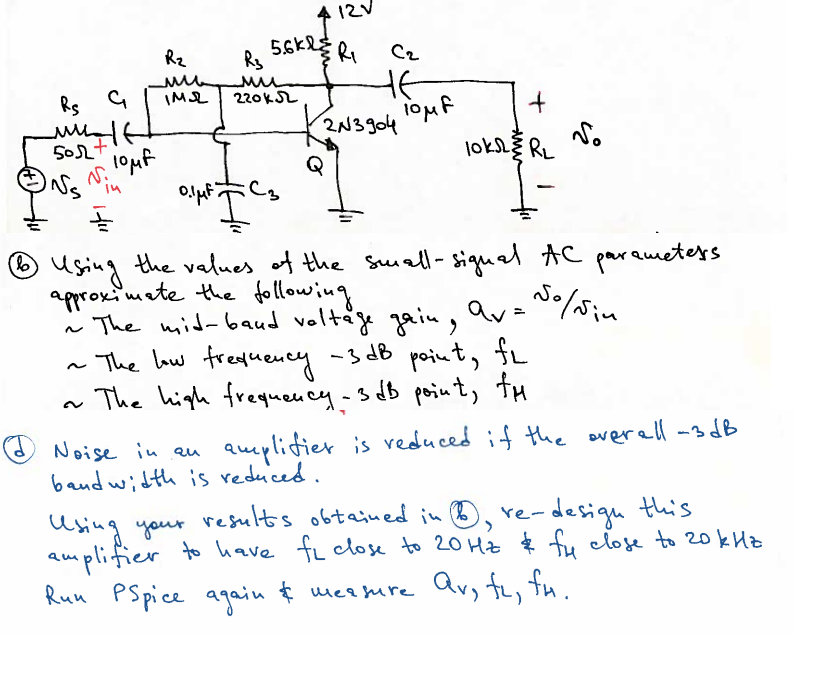 12V
5.6kΩ R1 C2
R2 R3
1MΩ 220kΩ 10μF +
Rs C1 2N3904 10kΩ RL vo
50Ω + 10μF Q
vs vin 0.1μF C3 −
−
ⓑ Using the values of the small-signal AC parameters
approximate the following
~ The mid-band voltage gain, av = vo/vin
~ The low frequency -3 dB point, fL
~ The high frequency -3 dB point, fH
ⓓ Noise in an amplifier is reduced if the overall -3dB
bandwidth is reduced.
Using your results obtained in ⓑ, re-design this
amplifier to have fL close to 20Hz & fH close to 20 kHz
Run PSpice again & measure av, fL, fH.